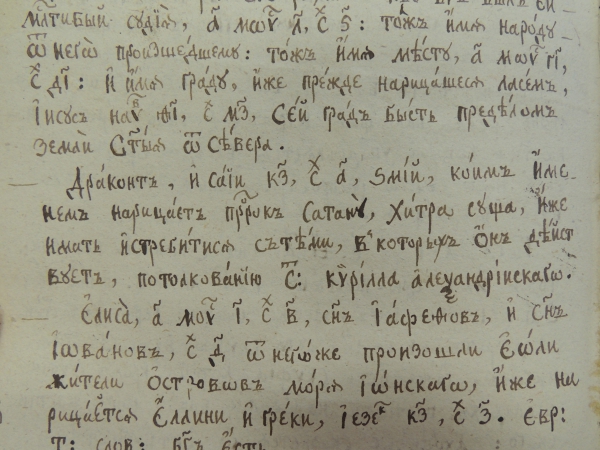 мл҃тивый судїѧ, а҃ моѵ҃ л҃, с҃ ѕ҃: тожъ и́мѧ народу
ѿ негѡ̀ произше́дшему: то́жъ и́мѧ мѣ́сту, а҃ моѵ҃ г҃і,
с҃ д҃і: и҆ и҆́мѧ гра́ду, и҆́же пре́жде нарица́шесѧ ласе́мъ,
і҆исусъ наѵ҃ ѳ҃і, с҃ м҃з, се́й гра́дъ бы́сть предѣ́ломъ
землѝ ст҃ы́ѧ ѿ сѣ́вера.
Дра́контъ, и҆ са́їи к҃з, с҃ а҃, ѕмі́й, ко́имъ и҆́ме-
немъ нарица́етъ прⷪ҇ро́къ сатанꙋ̀, хи́тра сꙋ́ща, и҆́же
и́мать и҆стреби́тисѧ съ тѣ́ми, в которыхъ ѻ҆́нъ дѣ́йст
вꙋетъ, по толкова́нїю с҃: кѷри́лла а҆леѯандрі́искагѡ.
Е҆лиса̀, а҃ моѵ҃ і҃, с҃ в҃, сн҃ъ і҆а́феѳовъ, и҆ сн҃ъ
і҆ѡва́новъ, с҃ д҃ ѿ негѡ́же произошлѝ є҆ѡ́ли
жи́тели ѻ҆́стрововъ мо́рѧ і҆ѡ́нскагѡ, и҆́же на
рица́ютсѧ є҆́ллини и҆ гре́ки, і҆езеⷦ҇ к҃з, с҃ з҃. є҆вр:
т: слов: бг҃ъ є҆́сть